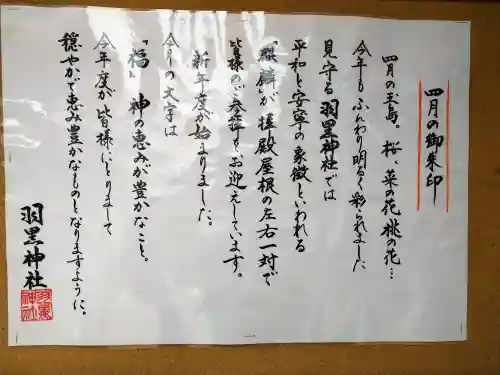 四月の御朱印
四月の玉島。桜、菜の花、桃の花…
今年もふんわり明るく彩られました
見守る羽黒神社では
平和と安寧の象徴といわれる
「麒麟」が拝殿屋根の左右一対で
皆様のご参拝をお迎えしています。
新年度が始まりました。
今月の文字は
「福」神の恵みが豊かなこと。
今年度が皆様にとりまして
穏やかで恵み豊かなものとなりますように。
羽黒神社
羽黒神社